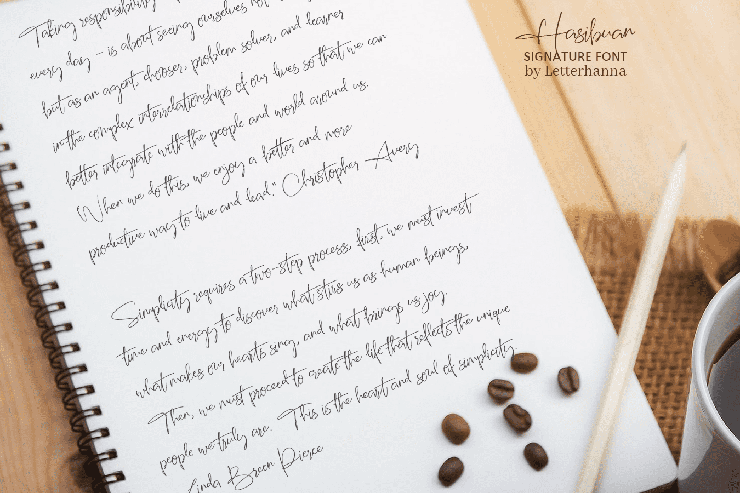 Taking responsibility
every day – is about seeing ourselves not
but as an agent, chooser, problem solver, and learner
in the complex interrelationships of our lives so that we can
better integrate with the people and world around us.
When we do this, we enjoy a better and more
productive way to live and lead." Christopher Avery
Simplicity requires a two-step process. First, we must invest
time and energy to discover what stirs us as human beings,
what makes our hearts sing, and what brings us joy.
Then, we must proceed to create the life that reflects the unique
people we truly are. This is the heart and soul of simplicity.
Linda Breen Pierce
Hasibuan
SIGNATURE FONT
by Letterhanna